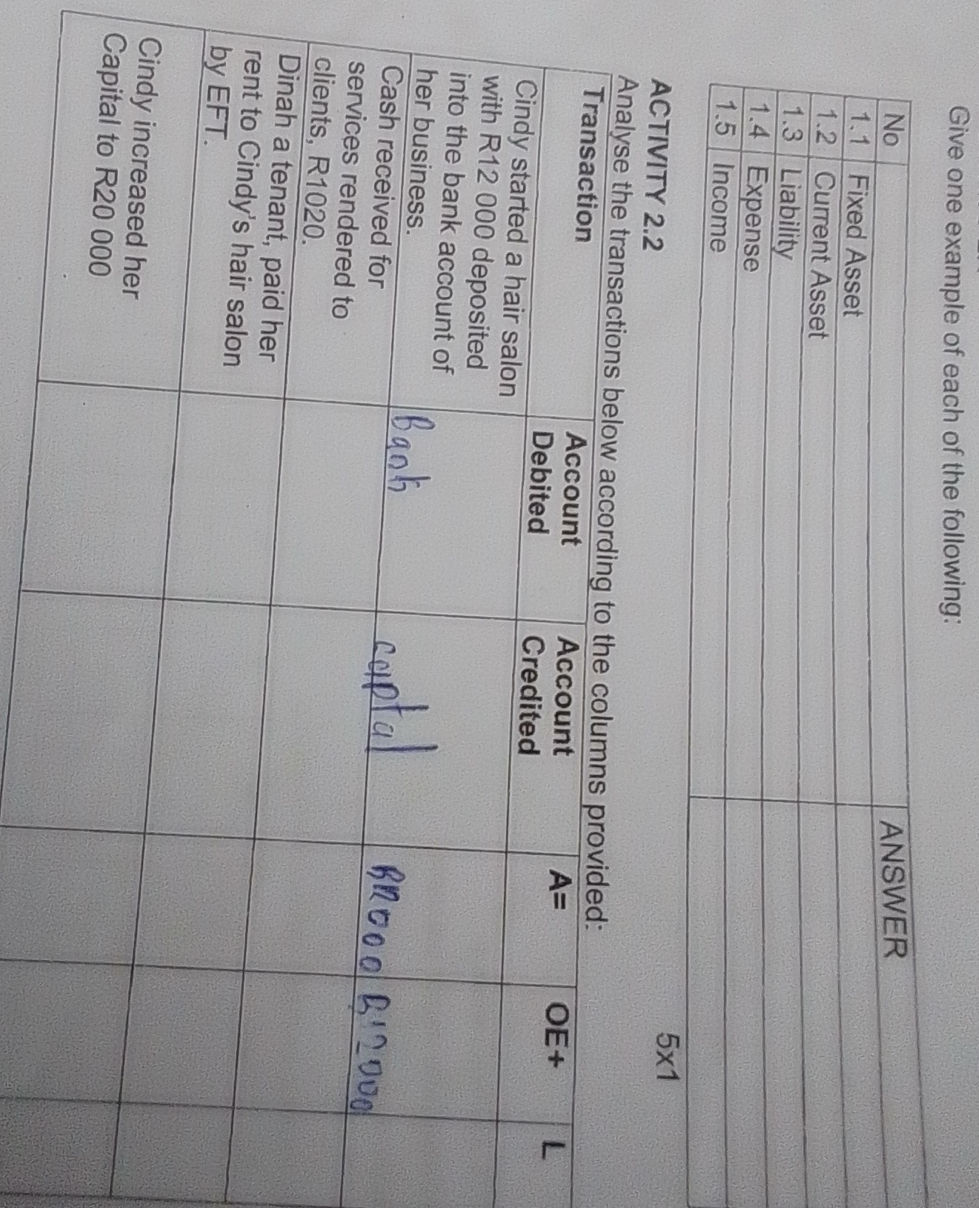 Give one example of each of the following:
No ANSWER
1.1 Fixed Asset
1.2 Current Asset
1.3 Liability
1.4 Expense
1.5 Income
5x1
ACTIVITY 2.2
Analyse the transactions below according to the columns provided:
Transaction Account Debited Account Credited A= OE+ L
Cindy started a hair salon
with R12 000 deposited
into the bank account of
her business.
Bank captal R12000 R12000
Cash received for
services rendered to
clients, R1020.
Dinah a tenant, paid her
rent to Cindy's hair salon
by EFT.
Cindy increased her
Capital to R20 000